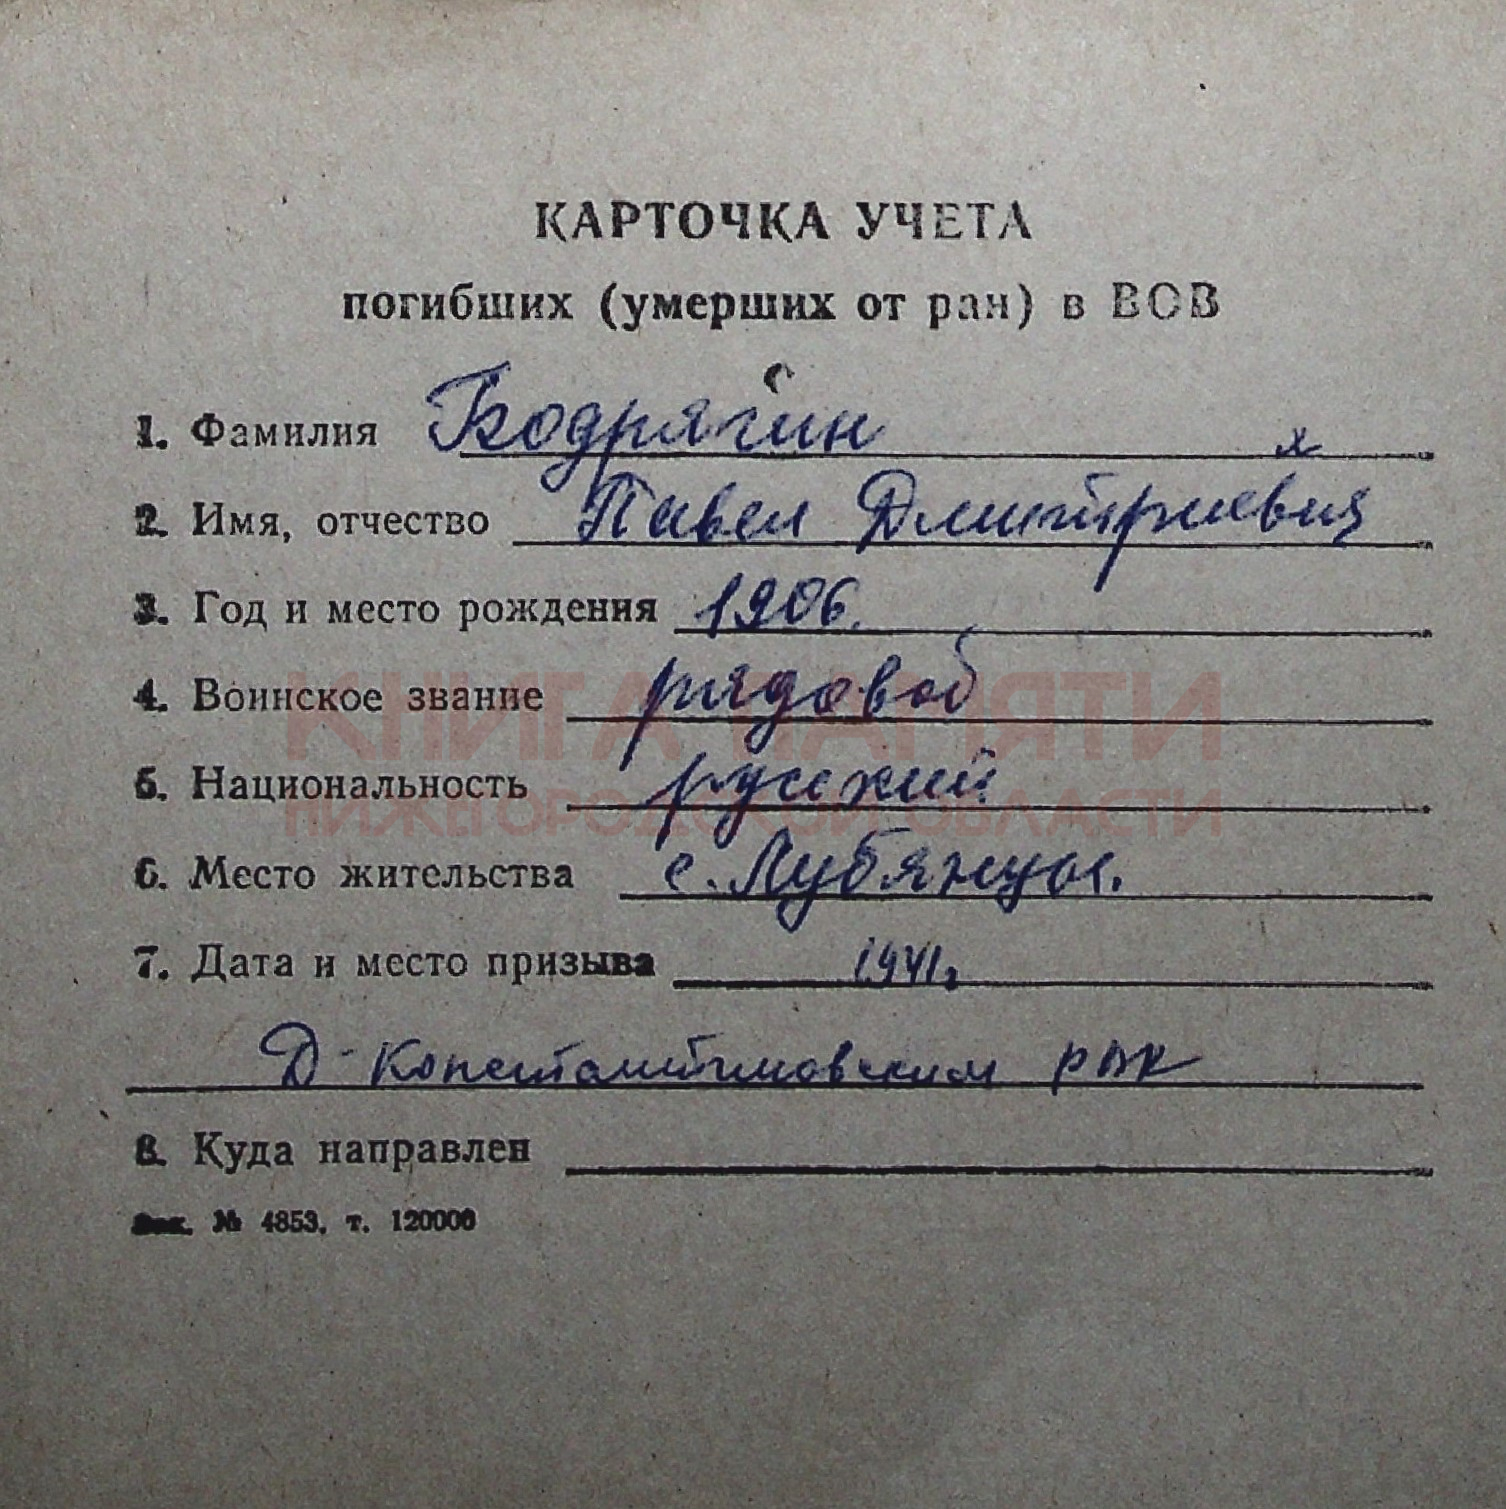 КАРТОЧКА УЧЕТА
погибших (умерших от ран) в ВОВ
1. Фамилия Бодрягин
2. Имя, отчество Павел Дмитриевич
3. Год и место рождения 1906.
4. Воинское звание рядовой
КНИГА ПАМЯТИ
5. Национальность русский
НИЖЕГОРОДСКОЙ ОБЛАСТИ
6. Место жительства с. Лубянцы.
7. Дата и место призыва 1941г.
Д-Константиновским РВК
8. Куда направлен
Зак. № 4853. т. 120000